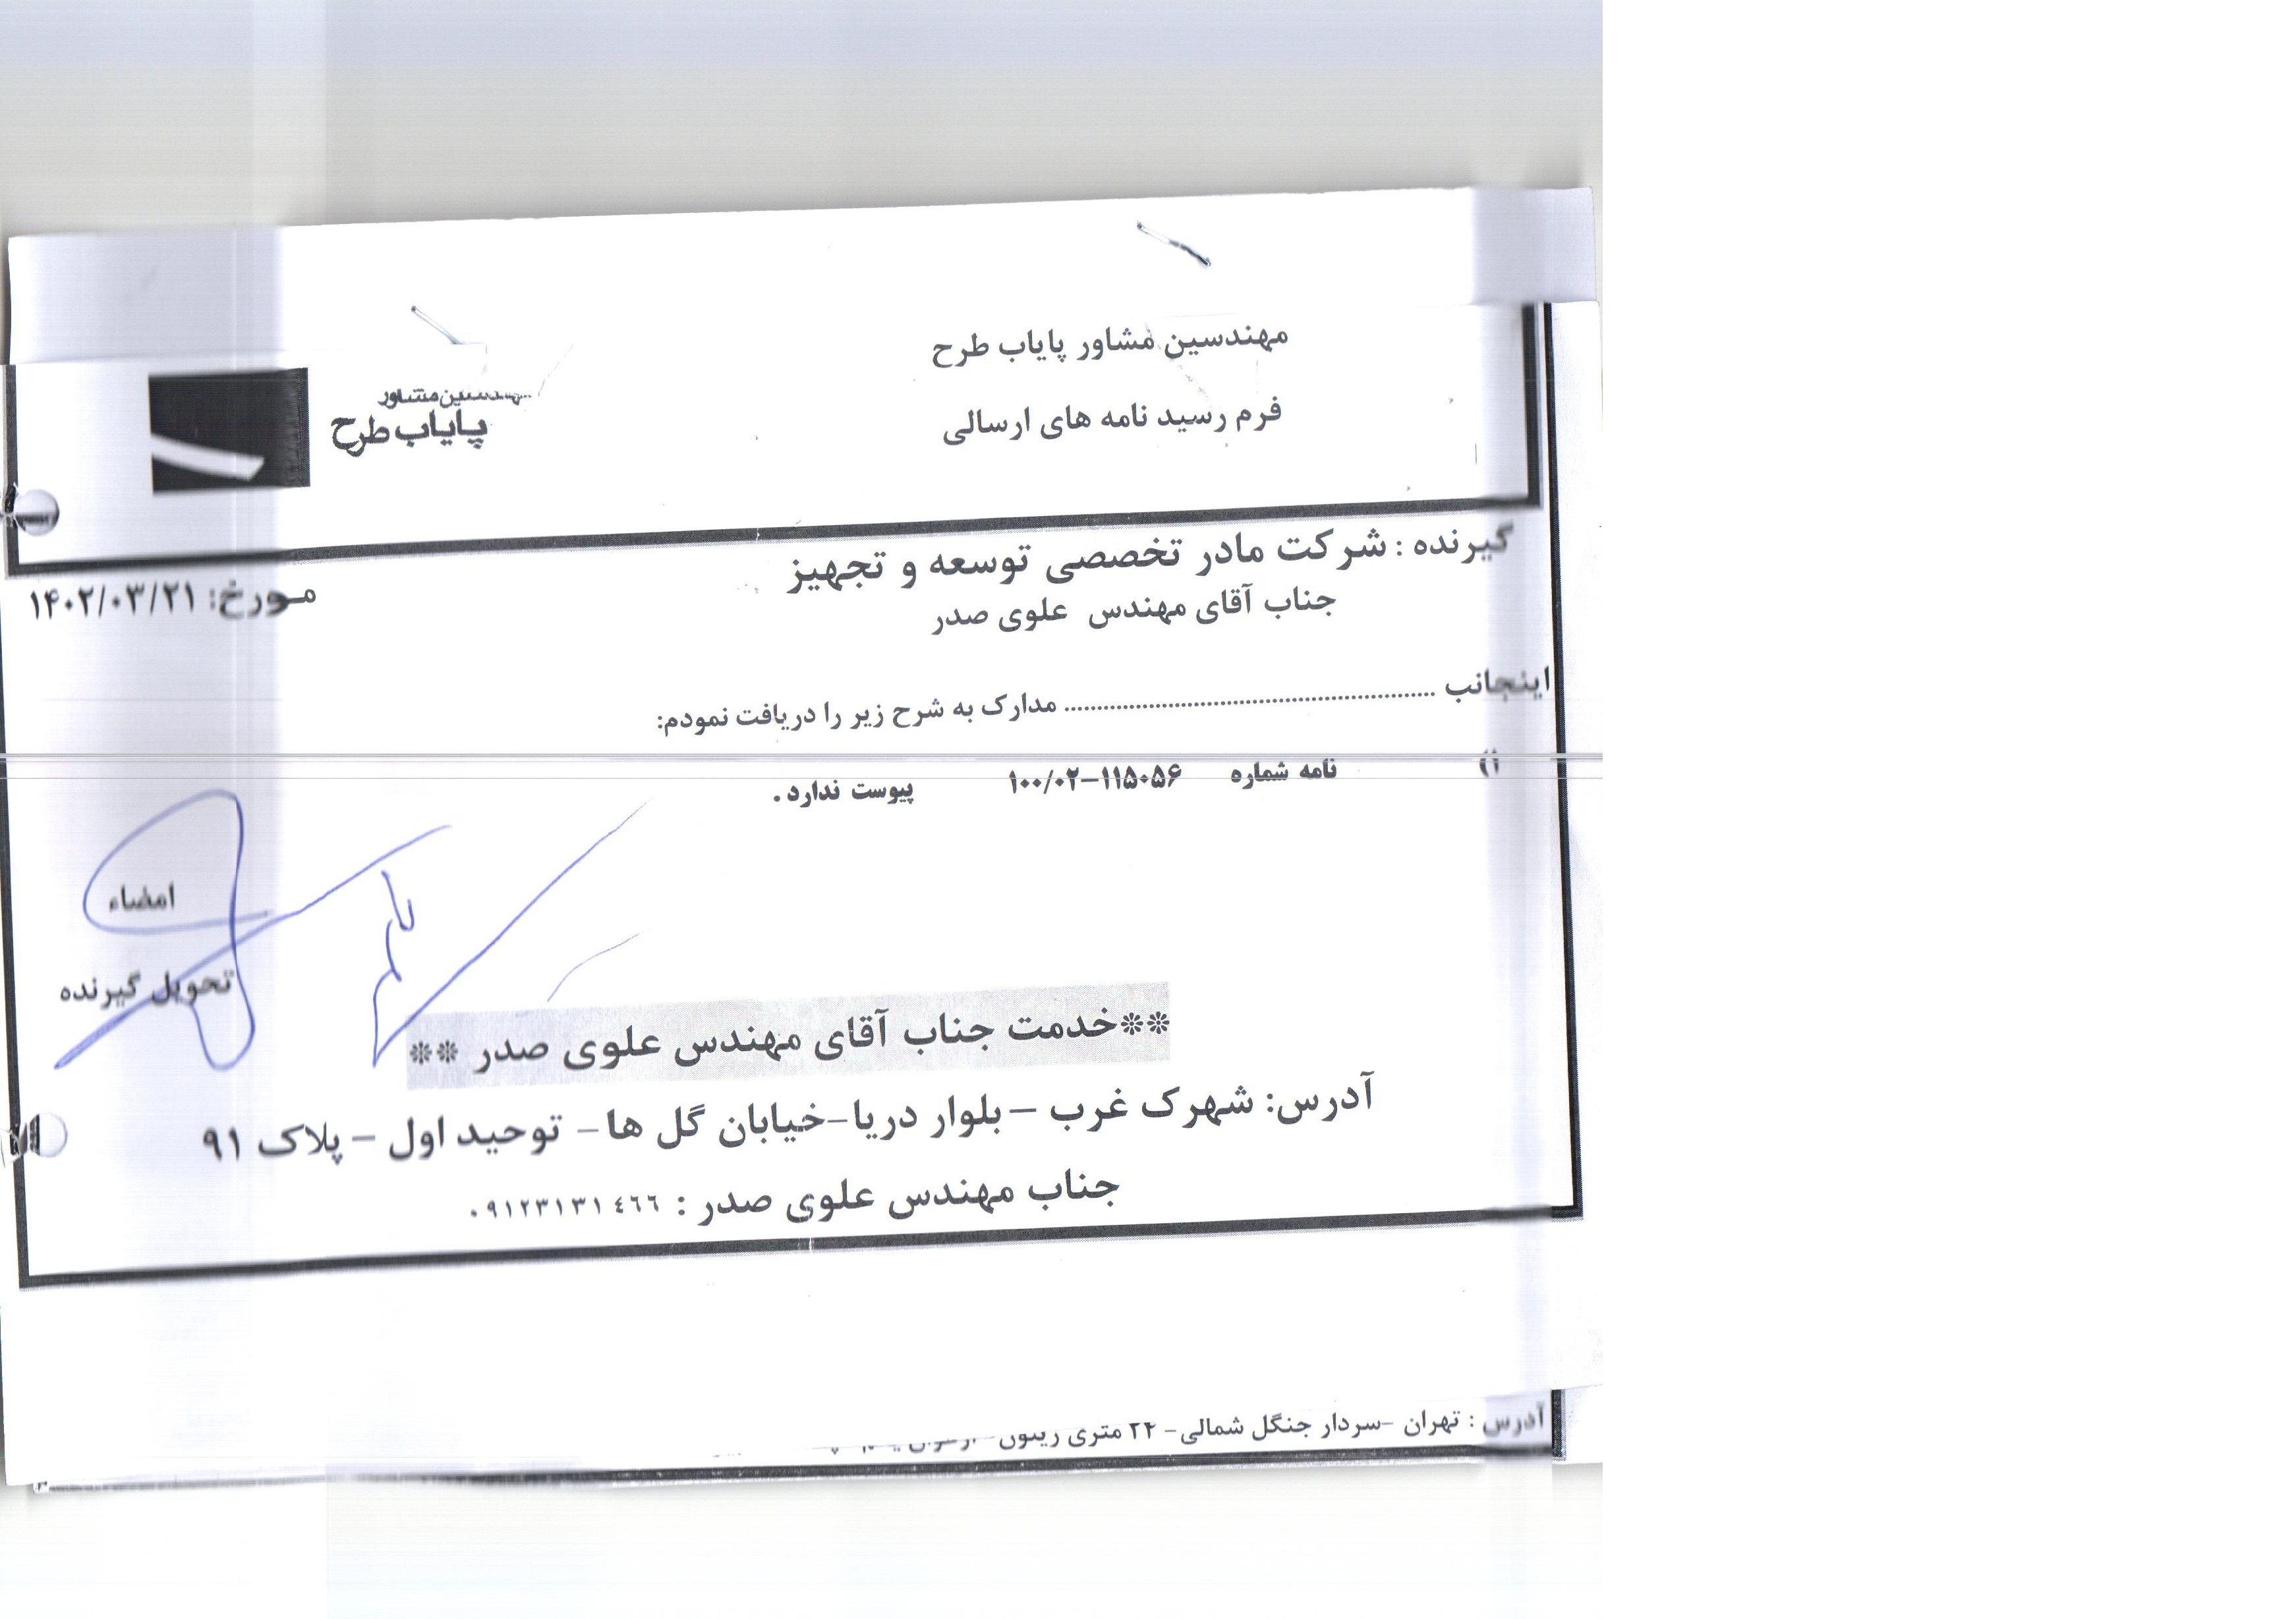 مهندسین مشاور پایاب طرح
فرم رسید نامه های ارسالی
مهندسین مشاور
پایاب طرح
گیرنده : شرکت مادر تخصصی توسعه و تجهیز
جناب آقای مهندس علوی صدر
مورخ: ۱۴۰۲/۰۳/۲۱
اینجانب ........................................................ مدارک به شرح زیر را دریافت نمودم:
۱) نامه شماره ۱۰۰/۰۲-۱۱۵۰۵۶ پیوست ندارد .
امضاء
تحویل گیرنده
**خدمت جناب آقای مهندس علوی صدر **
آدرس: شهرک غرب – بلوار دریا-خیابان گل ها- توحید اول – پلاک ۹۱
جناب مهندس علوی صدر : ۰۹۱۲۳۱۳۱٤٦٦
آدرس : تهران -سردار جنگل شمالی- ۲۴ متری